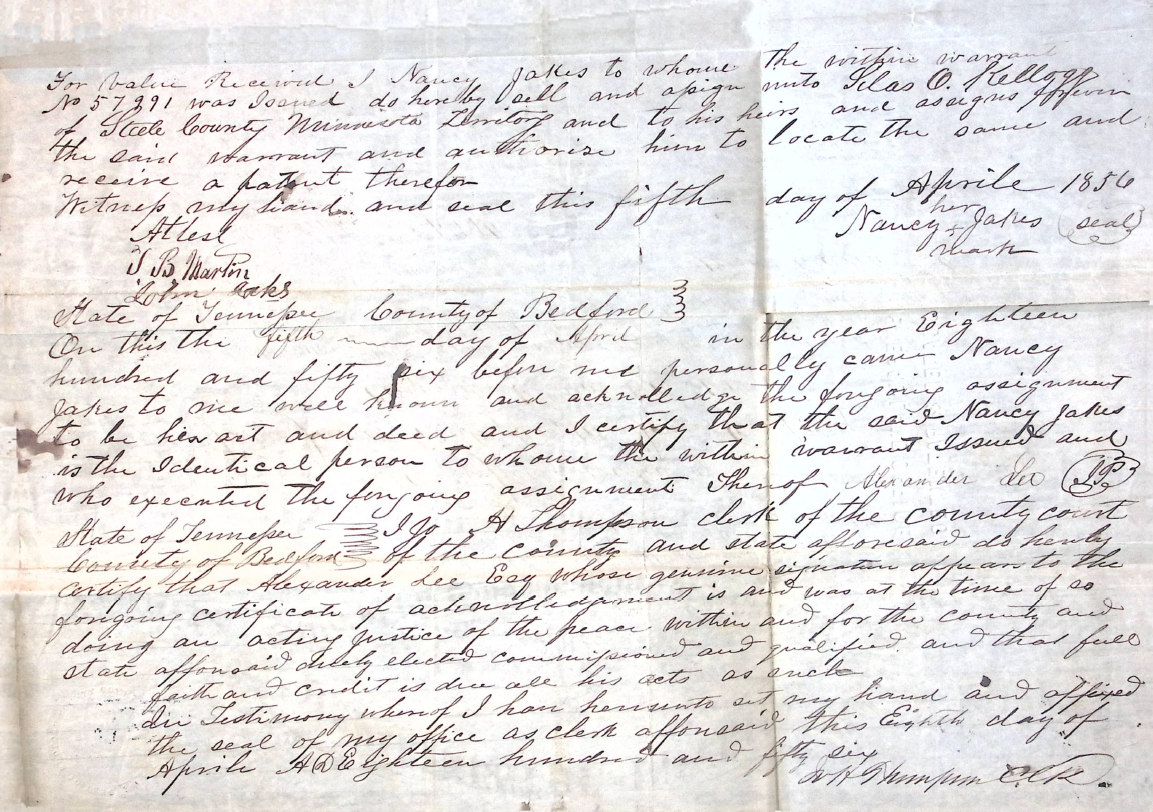 For value Received I Nancy Jakes to whome the within warrant
No 57391 was Issued do hereby sell and asign unto Silas O. Kellogg
of Steele County Minnesota Territory and to his heirs and assigns forever
the said warrant and authorise him to locate the same and
receive a patent therefor
Witness my hand and seal this fifth day of Aprile 1856
her
Attest Nancy + Jakes (seal)
mark
S B Martin
John Jaks
State of Tennessee County of Bedford
On this the fifth day of April in the year Eighteen
hundred and fifty six before me personally came Nancy
Jakes to me well known and acknolledge the forgoing assignment
to be her act and deed and I certify that the said Nancy Jakes
is the Identical person to whome the within warrant Issued and
who executed the forgoing assignment Thereof Alexander Lee JP
State of Tennessee I Jo H Thompson clerk of the county court
County of Bedford of the county and state afforesaid do hereby
certify that Alexander Lee Esq whose genuine signature appears to the
forgoing certificate of acknolledgement is and was at the time of so
doing an acting Justice of the peace within and for the county and
state afforesaid duely elected commissioned and qualified and that full
faith and credit is due all his acts as such
In Testimony whereof I have hereunto set my hand and affixed
the seal of my office as clerk afforesaid this Eighth day of
Aprile AD Eighteen hundred and fifty six
Jo H Thompson Clk